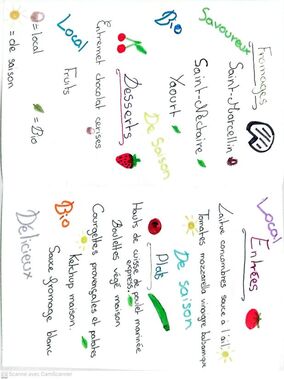 Fromages
Saint-Marcellin
Savoureux
Saint-Nectaire
Bio
Yaourt
De Saison
Desserts
Entremet chocolat cerises
Fruits
Local
= local
= Bio
= de saison
Local
Entrées
Laitue concombres sauce à l'ail
Tomates mozzarella vinaigre balsamique
De saison
Plats
Hauts de cuisse de poulet marinée
express
Boulettes végé maison
Courgettes provençales et patates
Ketchup maison
Bio
Sauce fromage blanc
Délicieux
Scanné avec CamScanner